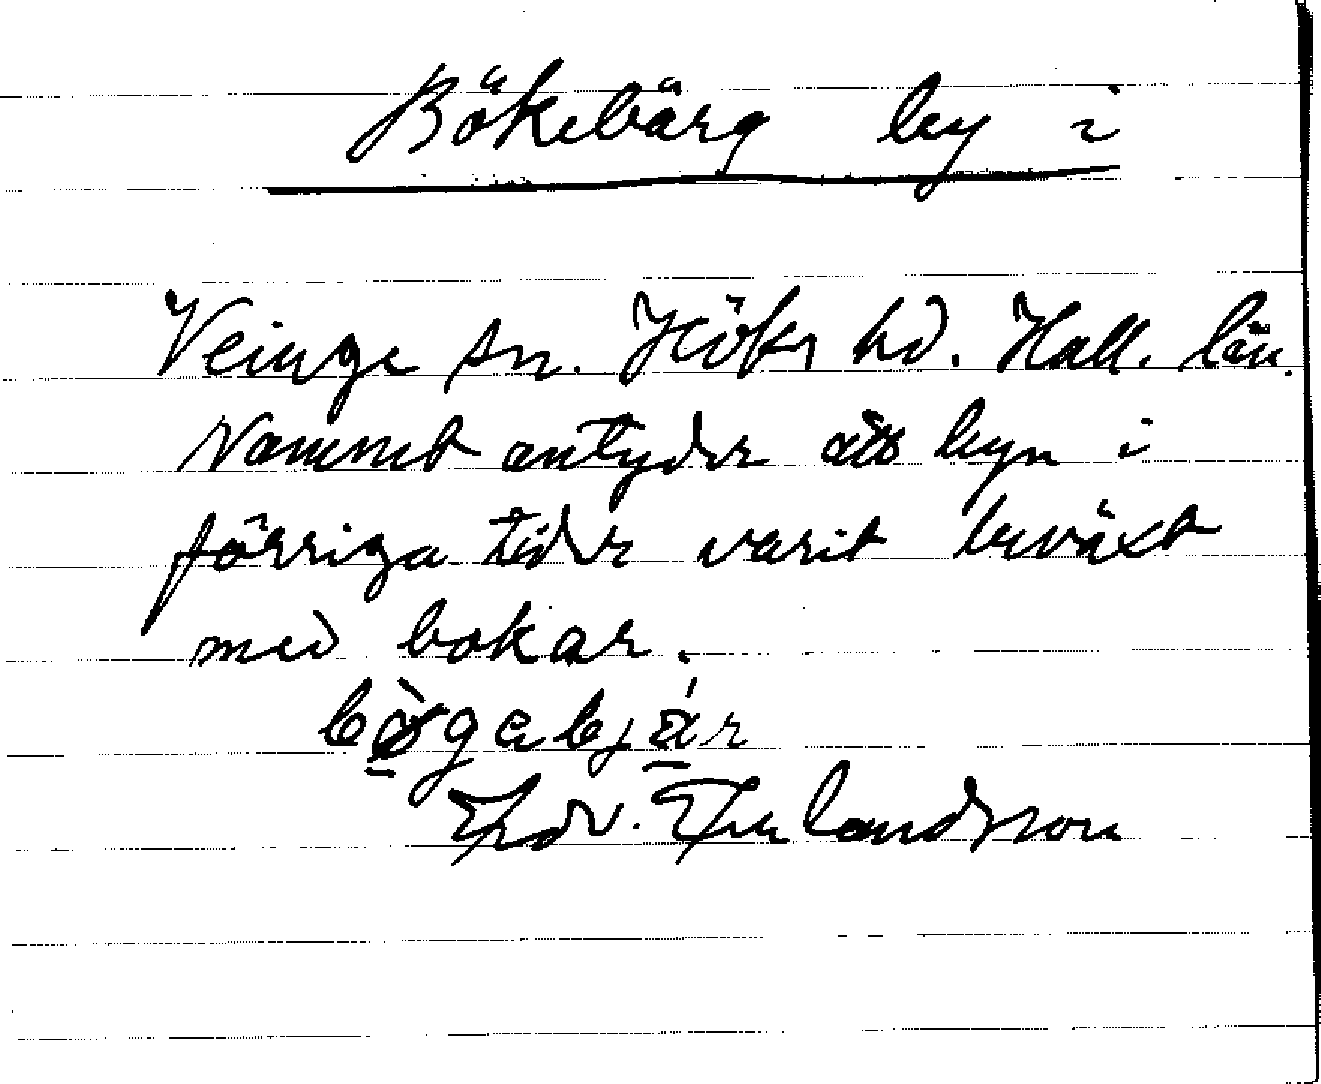 Bökebärg by i
Veinge sn. Höks hd. Hall. län.
Namnet antyder att byn i
förriga tider varit beväxt
med bokar.
Edv. Erlandsson